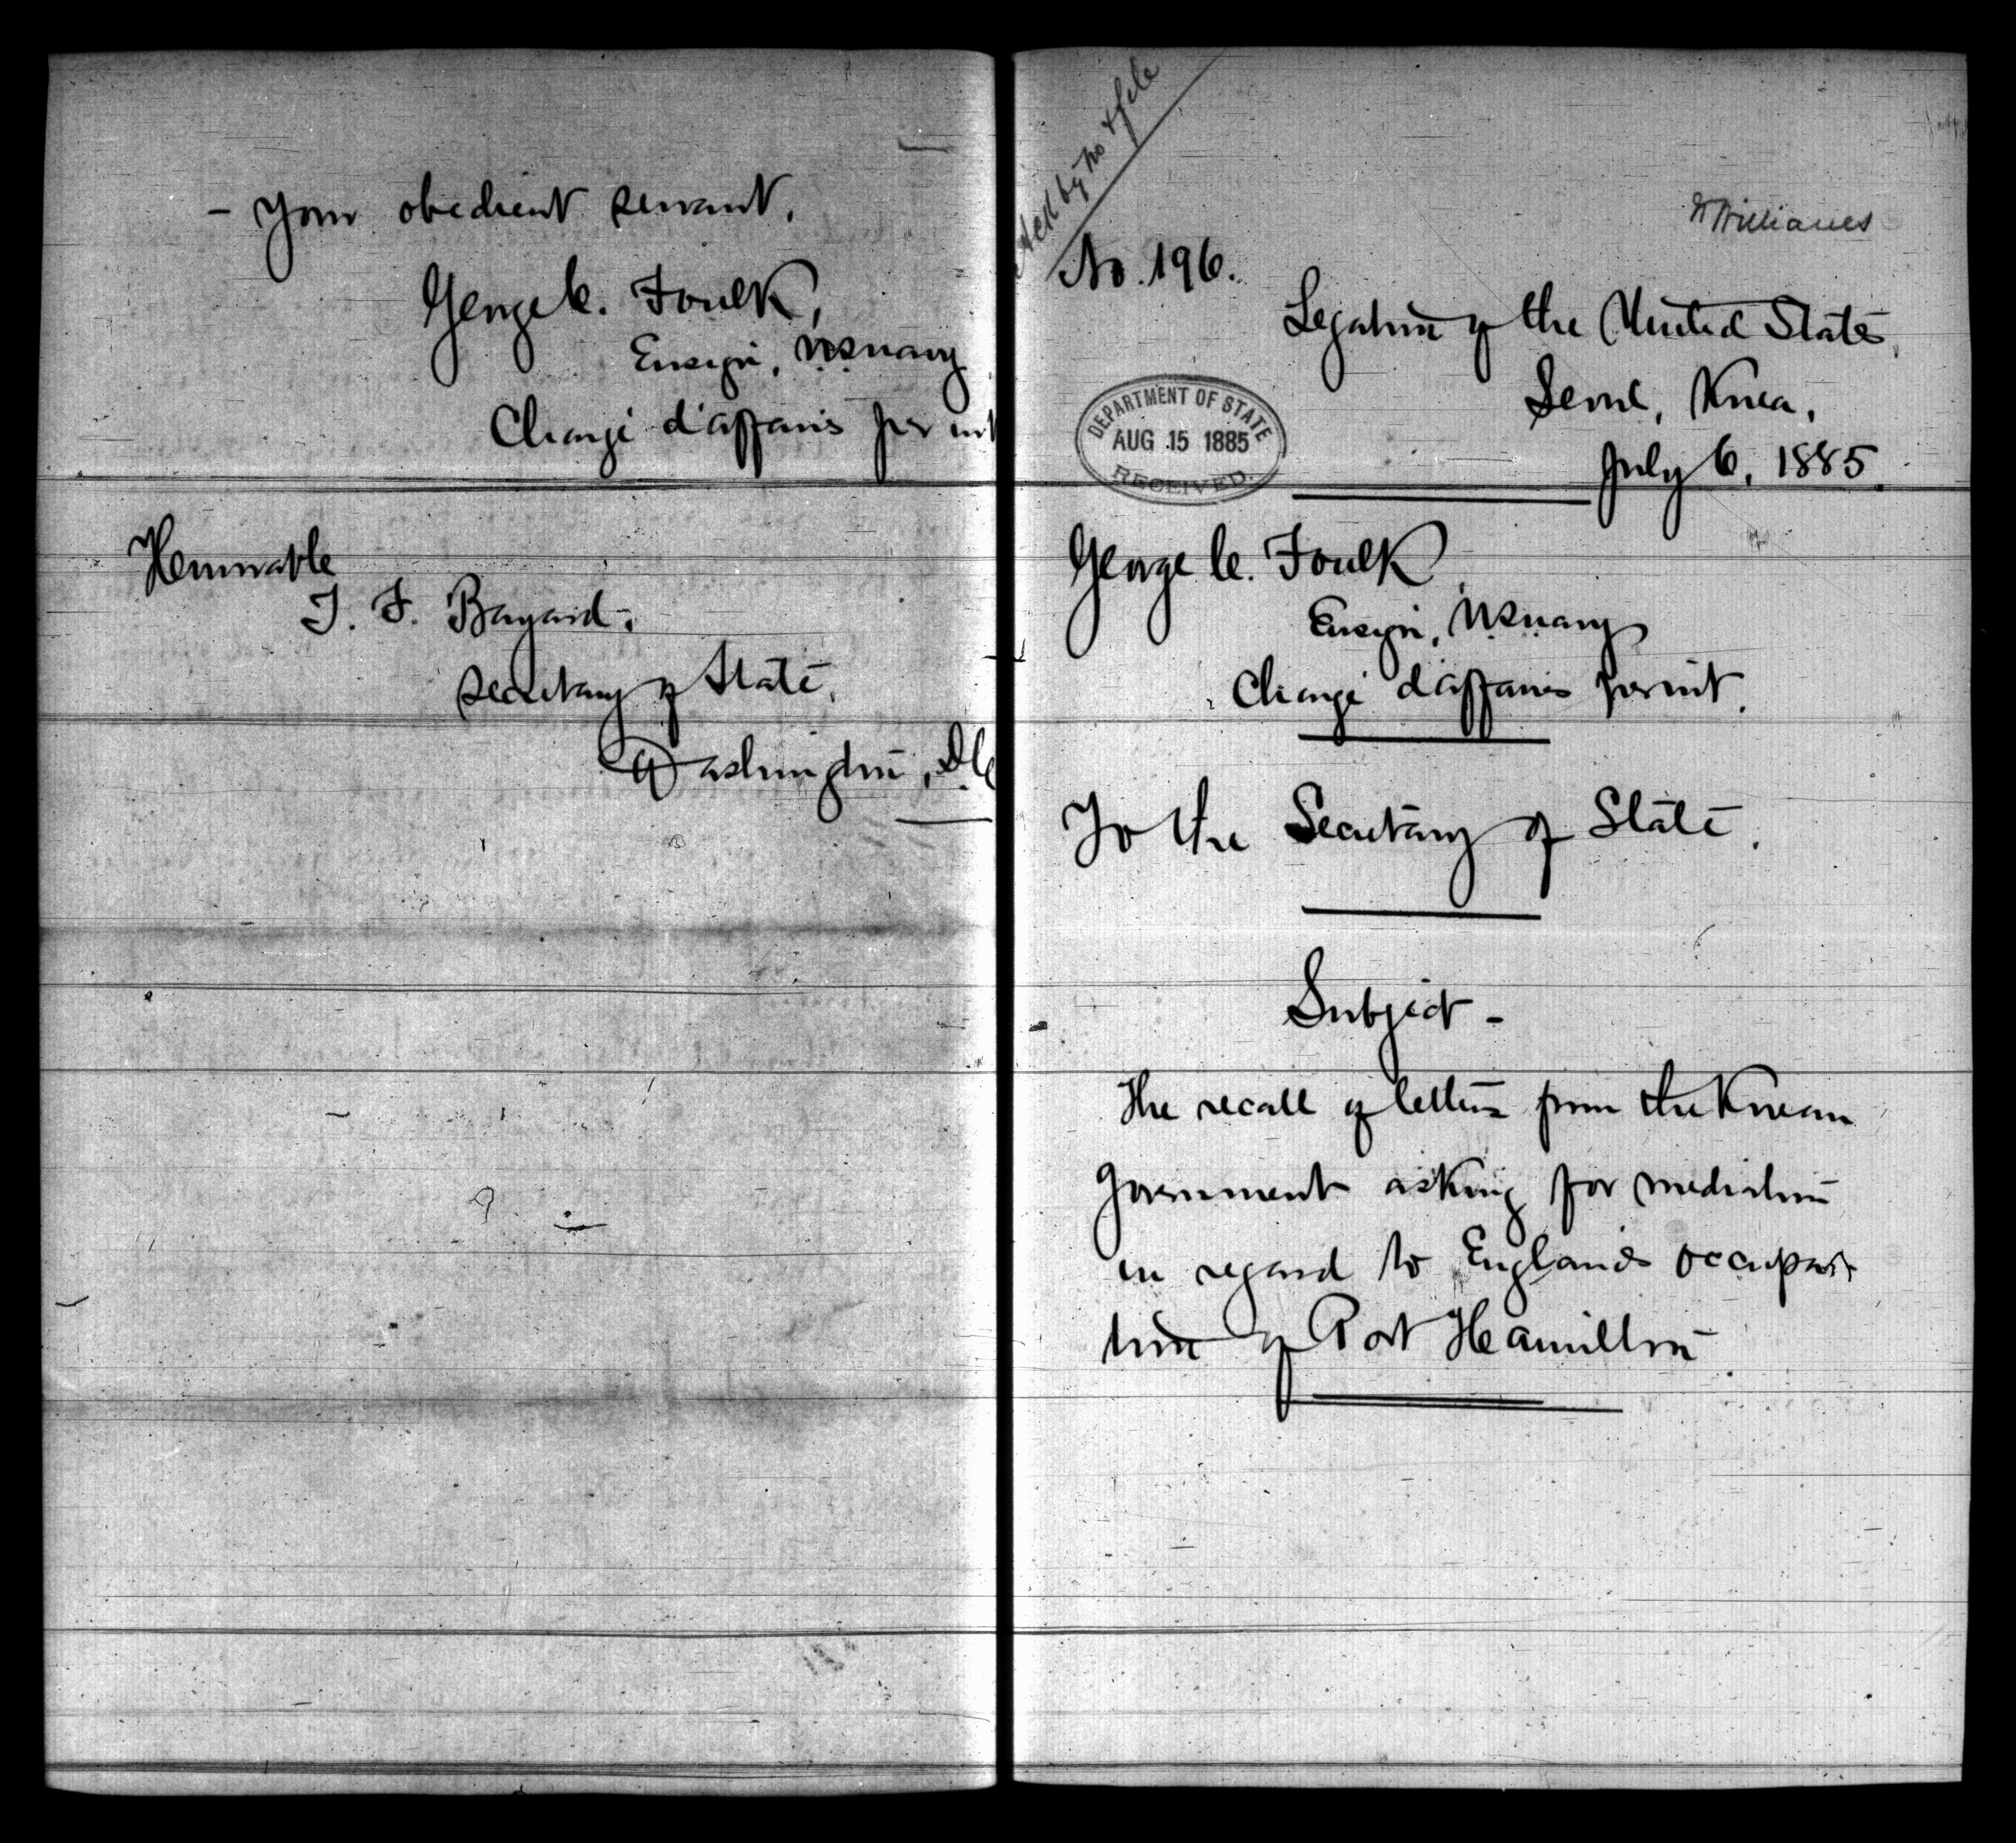 - Your obedient servant,
George C. Foulk,
Ensign, U.S. Navy
Chargé d'affaires per int
Honorable
T. F. Bayard,
Secretary of State,
Washington, D.C
by no & file
No. 196.
Williams
Legation of the United States,
Seoul, Korea,
July 6, 1885.
DEPARTMENT OF STATE
AUG 15 1885
RECEIVED.
George C. Foulk,
Ensign, U.S. Navy
Chargé d'affaires per int.
To the Secretary of State.
Subject -
The recall of letters from the Korean
Government asking for mediation
in regard to England's occupa-
tion of Port Hamilton.